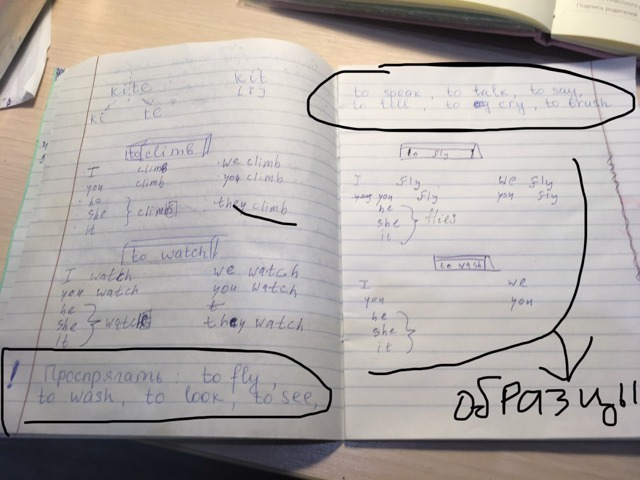 kite
kit
[i]
ki
te
to climb
I climb
we climb
you climb
you climb
he
she
it
climbs
they climb
to watch
I watch
we watch
you watch
you watch
he
she
it
they watch
! Проспрягать: to fly,
to wash, to look, to see,
to speak, to talk, to say,
to tell, to cry, to brush
to fly
I fly
we fly
you fly
you fly
he
she
it
flies
to wash
I
we
you
you
he
she
it
Образцы